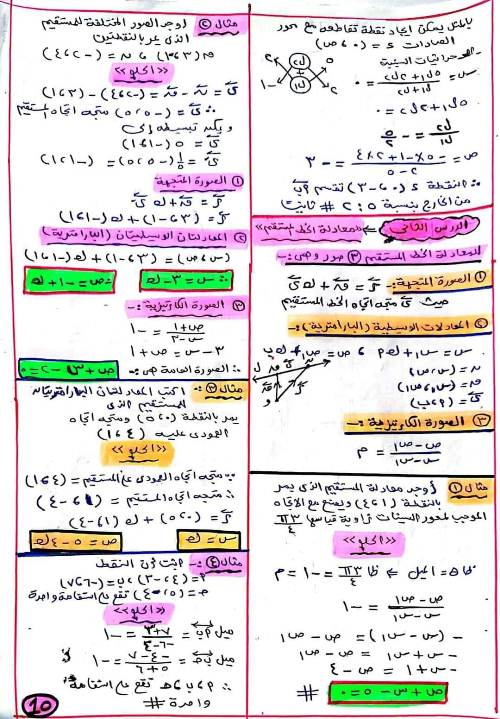 بالمثل يمكن إيجاد نقطة تقاطعه مع محور
الصادات د = (٠، ص)
س = (٥ل١ + ٢ل٢) / (ل١ + ل٢) = ٠
٥ل١ + ٢ل٢ = ٠
ل٢ / ل١ = -٥ / ٢
∴ النقطة د (٠، -٣) تقسم
من الخارج بنسبة ٥ : ٢ # ثانياً
الدرس الثاني ← «معادلة الخط المستقيم»
لمعادلة الخط المستقيم ٣ صور وهي:-
١ الصورة المتجهة:- ر = ق + ك ي
حيث ي متجه اتجاه الخط المستقيم
٢ المعادلات الوسيطية (البارامترية):-
س = س١ + ك م ، ص = ص١ + ك ب
ر = (س، ص)
ق = (س١، ص١)
ي = (م، ب)
٣ الصورة الكارتيزية:-
(ص - ص١) / (س - س١) = م
مثال ١ أوجد معادلة المستقيم الذي يمر
بالنقطة (١، ٤) ويصنع مع الاتجاه
الموجب لمحور السينات زاوية قياسها ٣π / ٤
«الحلو»
ظا هـ = الميل ⇐ ظا ٣π / ٤ = -١ = م
(ص - ص١) / (س - س١) = -١
-(س - س١) = ص - ص١
-س + س١ = ص - ص١
-س + ١ = ص - ٤
ص + س - ٥ = ٠ #
مثال ٢ أوجد الصور المختلفة للمستقيم
الذي يمر بالنقطتين
م (٣، ٦) ، ن = (-٢، ٤)
«الحلو»
و يمكن تبسيطه إلى
١ الصورة المتجهة
ر = ق + ك ي
ر = (٣، -١) + ك (-١، ١)
٢ المعادلتان الوسيطيتان (البارامترية)
(س، ص) = (٣، -١) + ك (-١، ١)
س = ٣ - ك
ص = -١ + ك
٣ الصورة الكارتيزية:-
(ص + ١) / (س - ٣) = -١
٣ - س = ص + ١
∴ الصورة العامة هي:- ص + س - ٢ = ٠
مثال ٣ اكتب المعادلتان البارامتريتان
للمستقيم الذي
يمر بالنقطة (٠، ٥) ومتجه اتجاه
العمودي عليه (٤، ١)
«الحلو»
∵ متجه اتجاه العمودي على المستقيم = (٤، ١)
∴ متجه اتجاه المستقيم = (١، -٤)
ر = (٠، ٥) + ك (١، -٤)
س = ك
ص = ٥ - ٤ك
مثال ٤:- اثبت أن النقط
م = (٤، -٣) ، ب = (-٦، ٧)
جـ = (٥، -٤) تقع على استقامة واحدة
«الحلو»
ميل م ب = (٧ + ٣) / (-٦ - ٤) = -١
ميل ب جـ = (-٤ - ٧) / (٥ + ٦) = -١
∴ م، ب، جـ تقع على استقامة
واحدة #
١٥